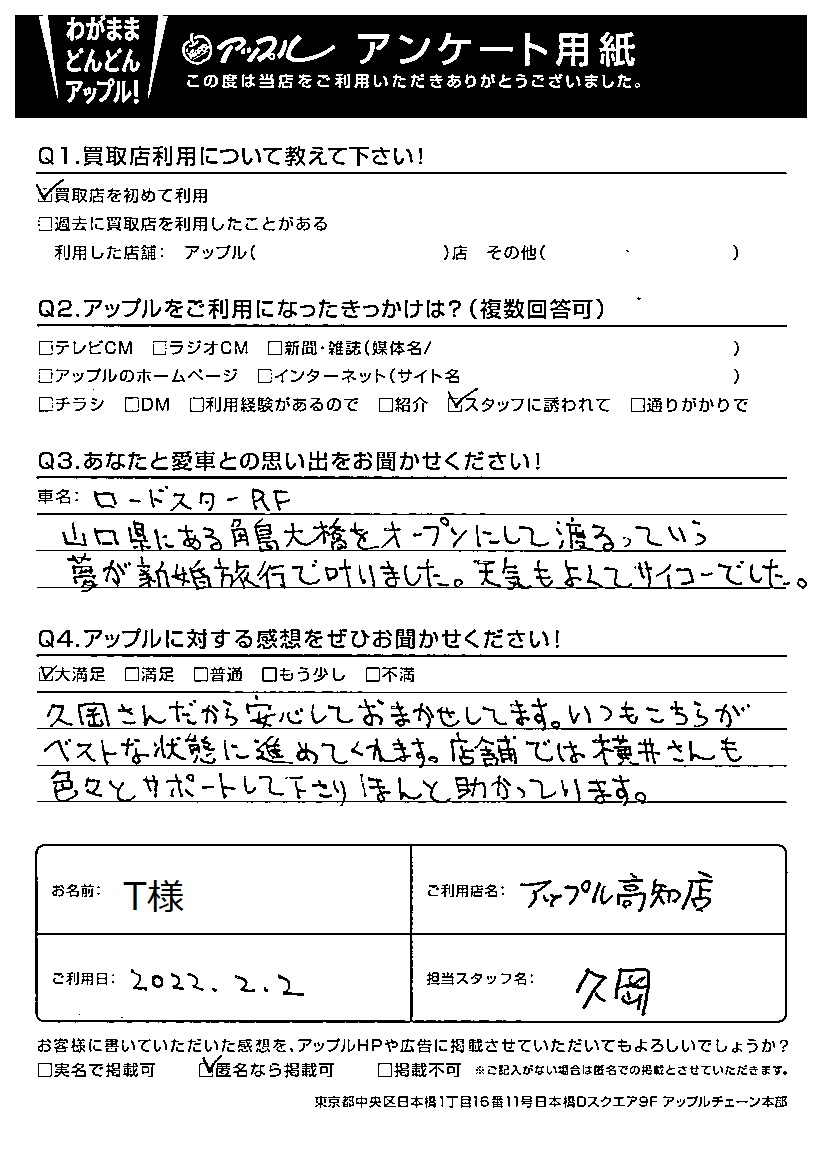 わがまま
どんどん
アップル!
アップル アンケート用紙
この度は当店をご利用いただきありがとうございました。
Q1.買取店利用について教えて下さい!
☑買取店を初めて利用
□過去に買取店を利用したことがある
利用した店舗: アップル( )店 その他( )
Q2.アップルをご利用になったきっかけは?(複数回答可)
□テレビCM □ラジオCM □新聞・雑誌(媒体名/ )
□アップルのホームページ □インターネット(サイト名 )
□チラシ □DM □利用経験があるので □紹介 ☑スタッフに誘われて □通りがかりで
Q3.あなたと愛車との思い出をお聞かせください!
車名: ロードスターRF
山口県にある角島大橋をオープンにして渡るっていう
夢が新婚旅行で叶いました。天気もよくてサイコーでした。
Q4.アップルに対する感想をぜひお聞かせください!
☑大満足 □満足 □普通 □もう少し □不満
久岡さんだから安心しておまかせしてます。いつもこちらが
ベストな状態に進めてくれます。店舗では横井さんも
色々とサポートして下さりほんと助かっています。
お名前: T様
ご利用店名: アップル高知店
ご利用日: 2022.2.2
担当スタッフ名: 久岡
お客様に書いていただいた感想を、アップルHPや広告に掲載させていただいてもよろしいでしょうか?
□実名で掲載可 ☑匿名なら掲載可 □掲載不可 ※ご記入がない場合は匿名での掲載とさせていただきます。
東京都中央区日本橋1丁目16番11号日本橋Dスクエア9F アップルチェーン本部